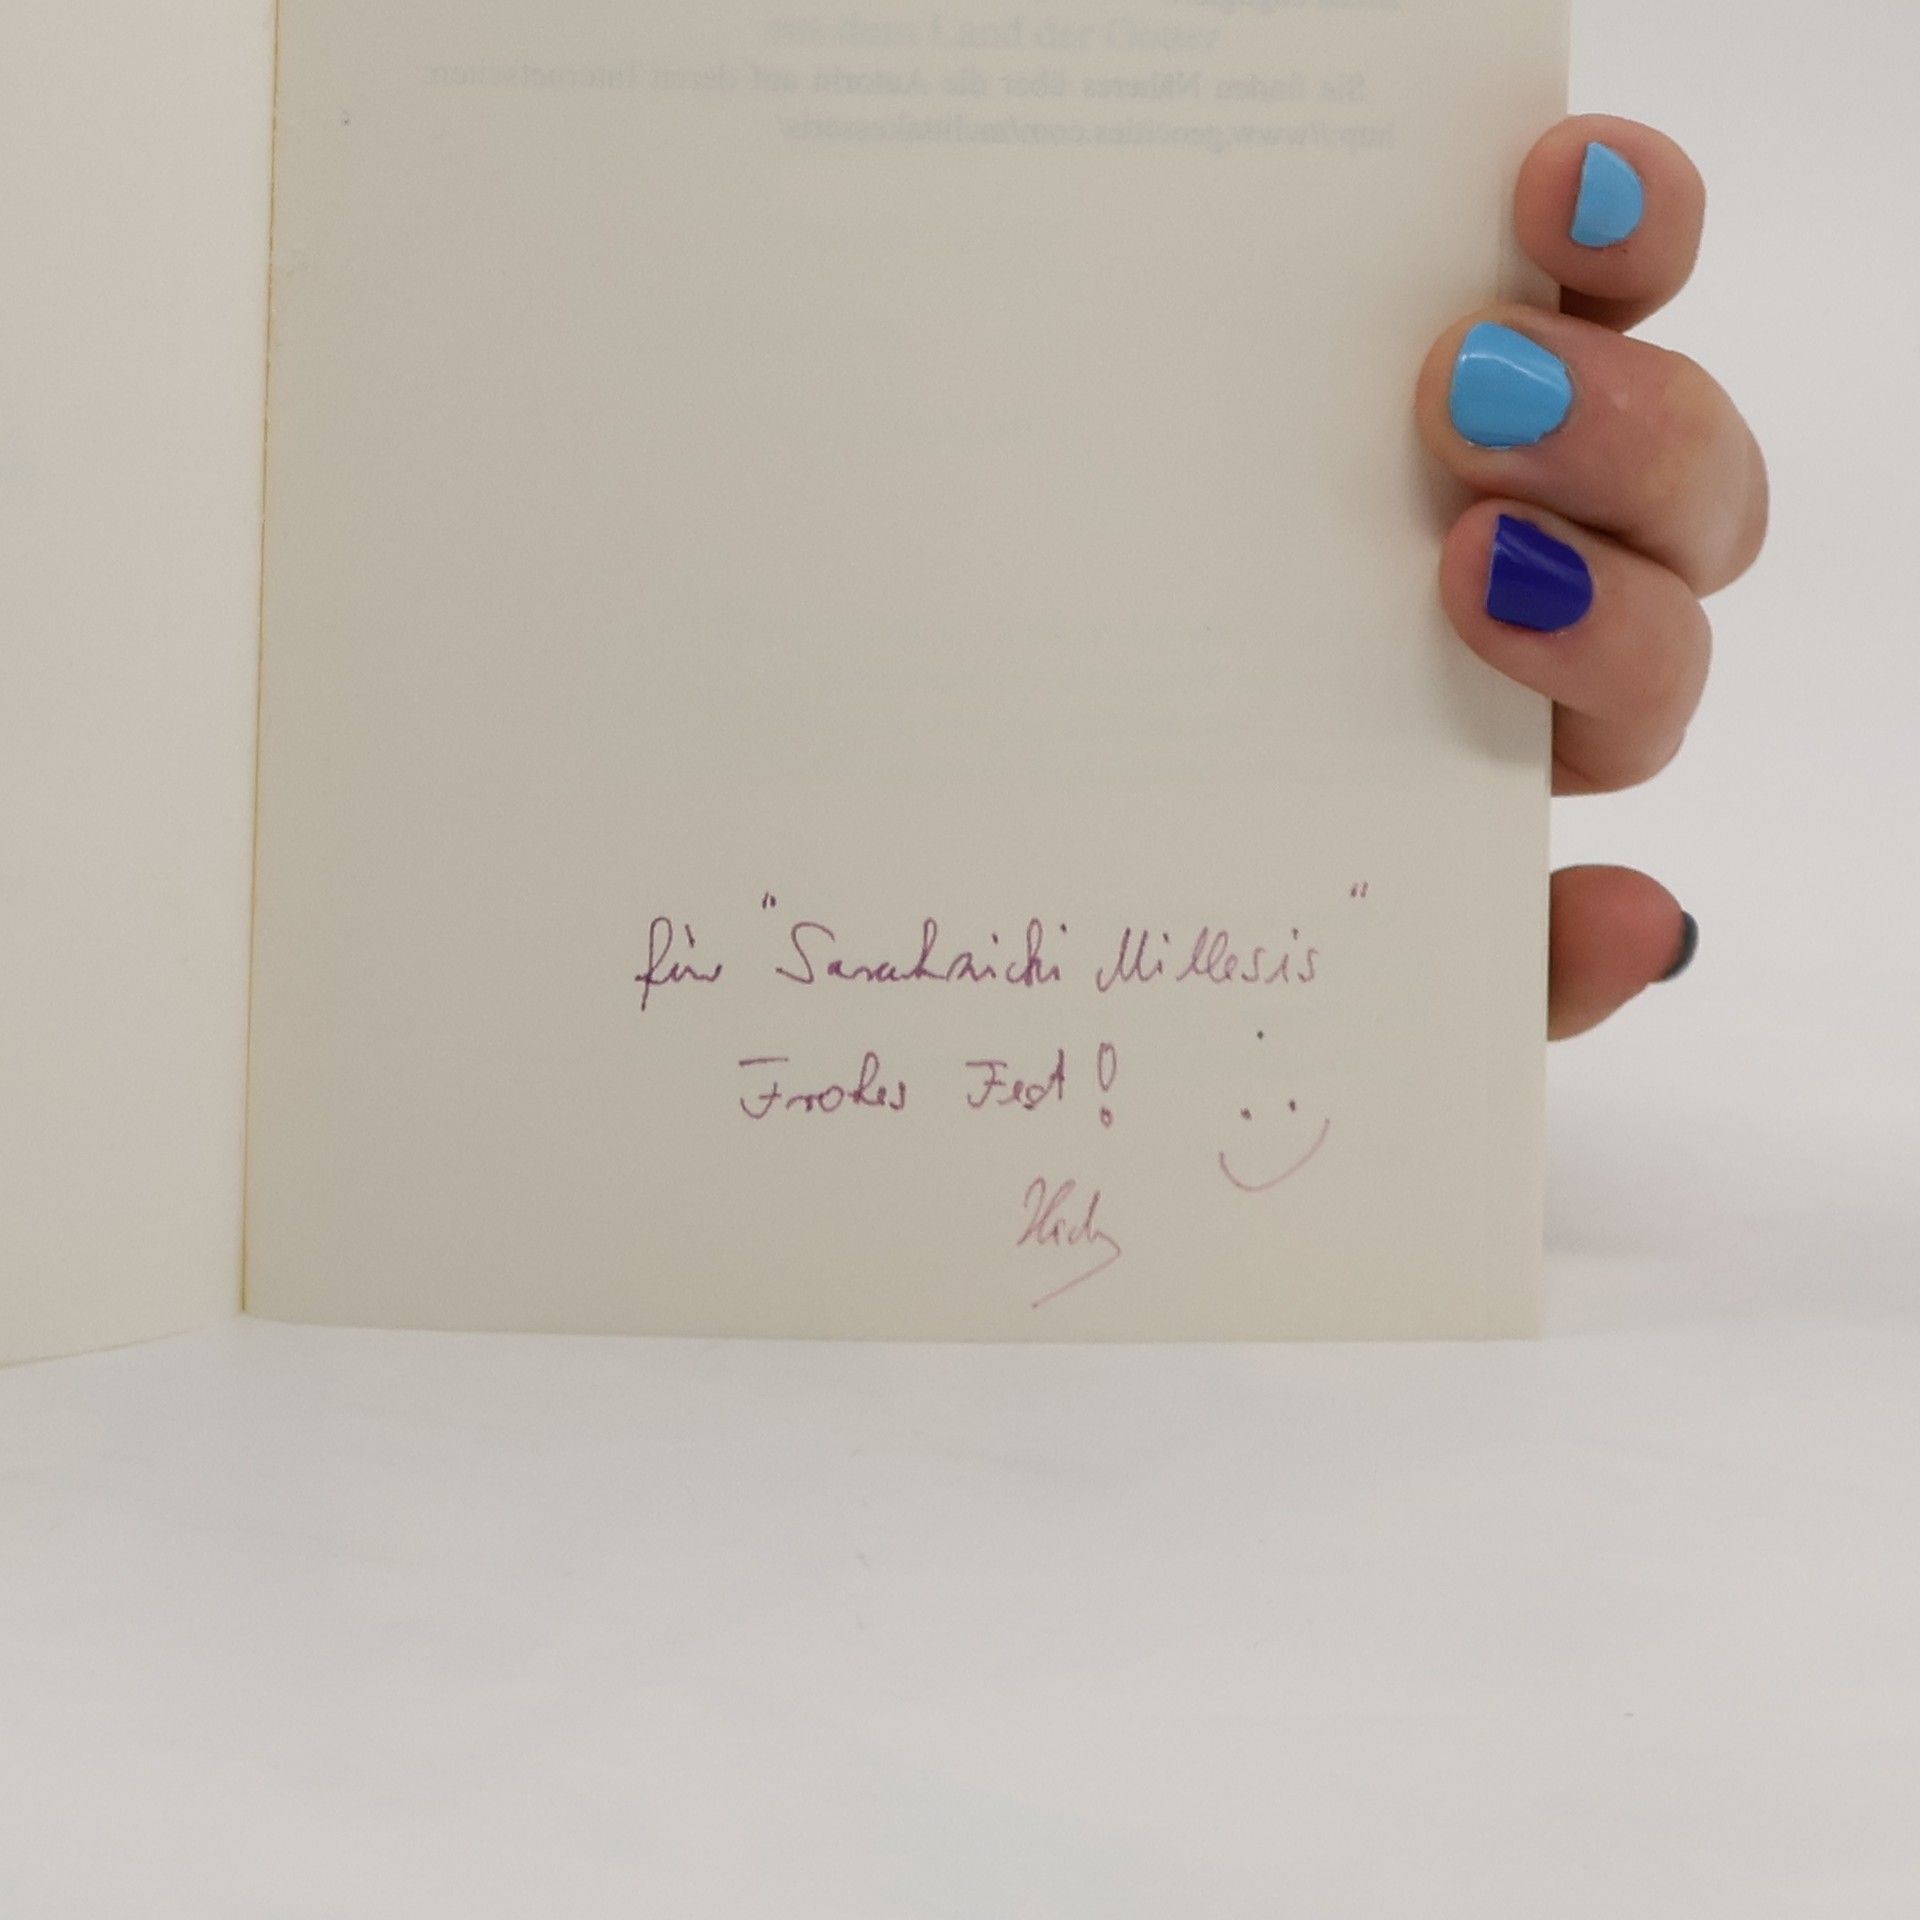 aus dem Land der Götter
Sie finden Näheres über die Autorin auf deren Internetseiten
http://www.geocities.com/melittakessaris/
für "Sarahnicki Millesis"
Frohes Fest!